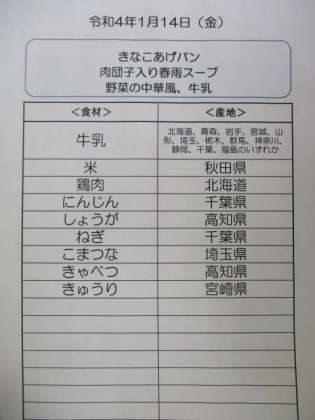 令和4年1月14日（金）
きなこあげパン
肉団子入り春雨スープ
野菜の中華風、牛乳
＜食材＞ ＜産地＞
牛乳 北海道、青森、岩手、宮城、山
形、埼玉、栃木、群馬、神奈川、
静岡、千葉、福島のいずれか
米 秋田県
鶏肉 北海道
にんじん 千葉県
しょうが 高知県
ねぎ 千葉県
こまつな 埼玉県
きゃべつ 高知県
きゅうり 宮崎県